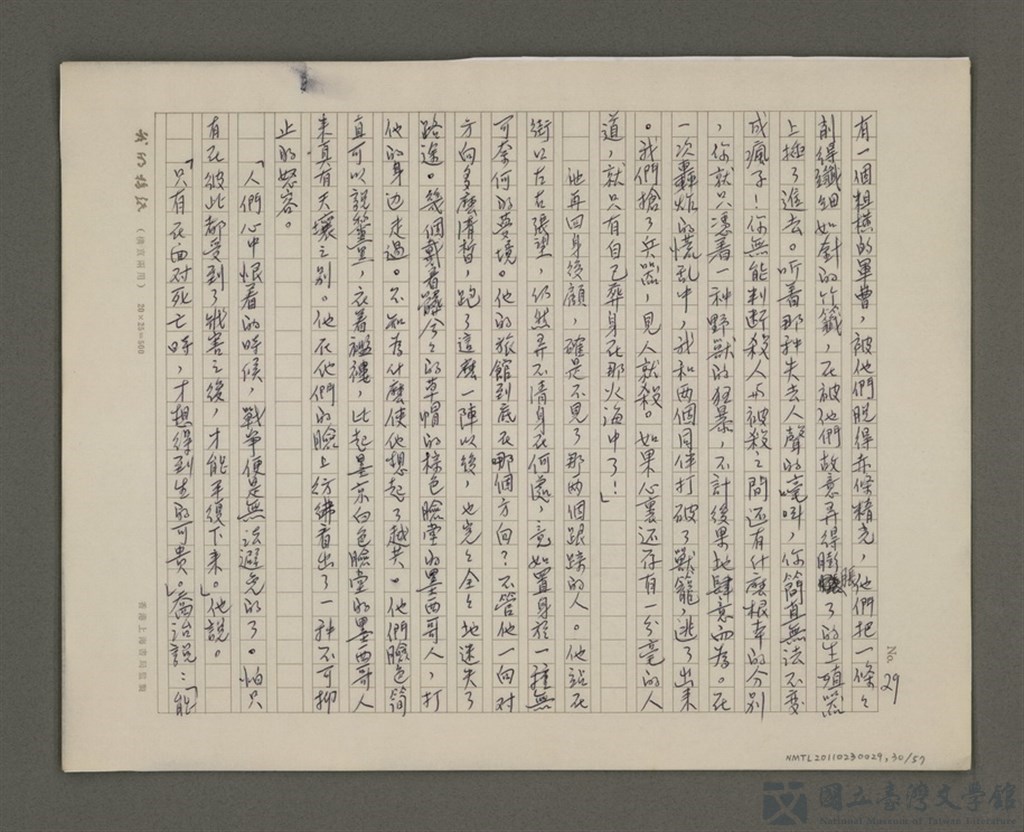 No. 29
有一個粗橫的軍曹,被他們脫得赤條精光,他們把一條々
削得纖細如針的竹籤,在被他們故意弄得膨脹了的生殖器
上插了進去。听着那种失去人聲的嚎叫,你簡直無法不變
成瘋子!你無能判断殺人与被殺之間还有什麼根本的分別
,你就只憑着一种野獸的狂暴,不計後果地肆意而為。在
一次轟炸的慌乱中,我和两個同伴打破了獸籠,逃了出来
。我們搶了兵器,見人就殺。如果心裏还存有一分毫的人
道,就只有自己葬身在那火海中了!」
他再回身後顧,確是不見了那两個跟踪的人。他站在
街口左右張望,仍然弄不清身在何處,竟如置身於一種無
可奈何的夢境。他的旅館到底在哪個方向?不管他一向对
方向多麼清晳,跑了這麼一陣以後,也完々全々地迷失了
路途。幾個戴着 的草帽的棕色臉堂的墨西哥人,打
他的身边走過。不知為什麼使他想起了越共。他們臉色簡
直可以說黧黑,衣着襤褸,比起墨京白色臉堂的墨西哥人
来真有天壤之別。他在他們的臉上彷彿看出了一种不可抑
止的怒容。
「人們心中恨着的時候,戰爭便是無法避免的了。怕只
有在彼此都受到了戕害之後,才能平復下来。」他說。
「只有在面对死亡時,才想得到生的可貴。」喬治說:「能
我的稿紙 (橫直兩用) 20×25=500
香港上海書局監製
NMTL20110230029,30/57
國立臺灣文學館
National Museum of Taiwan Literature